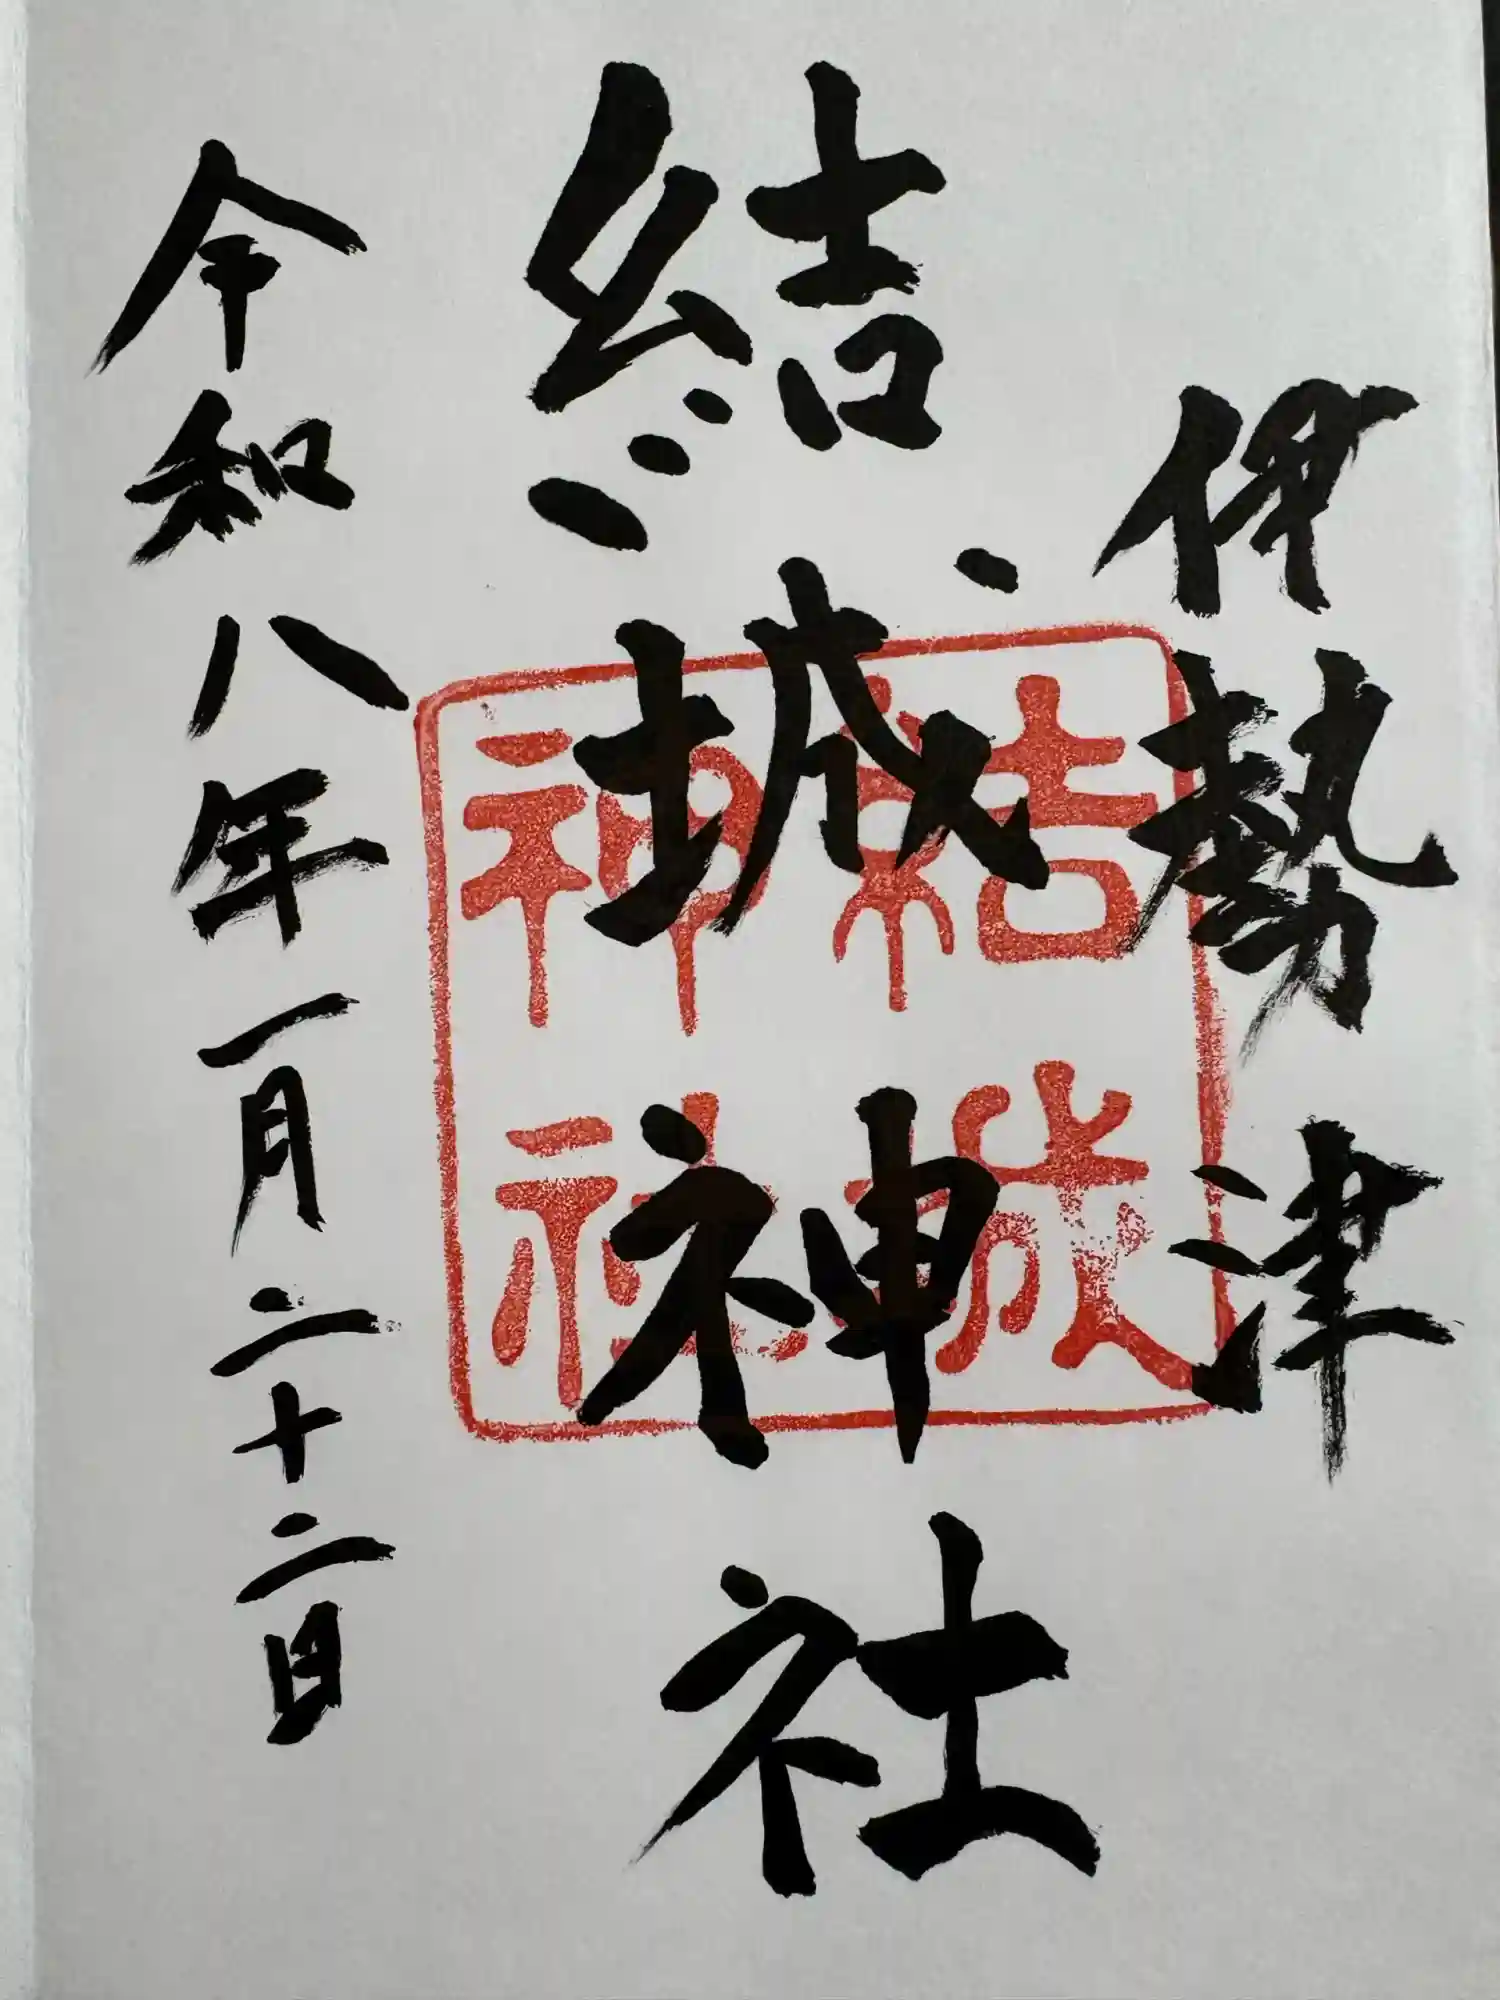 伊勢津
結城神社
結城
神社
令和八年一月二十二日